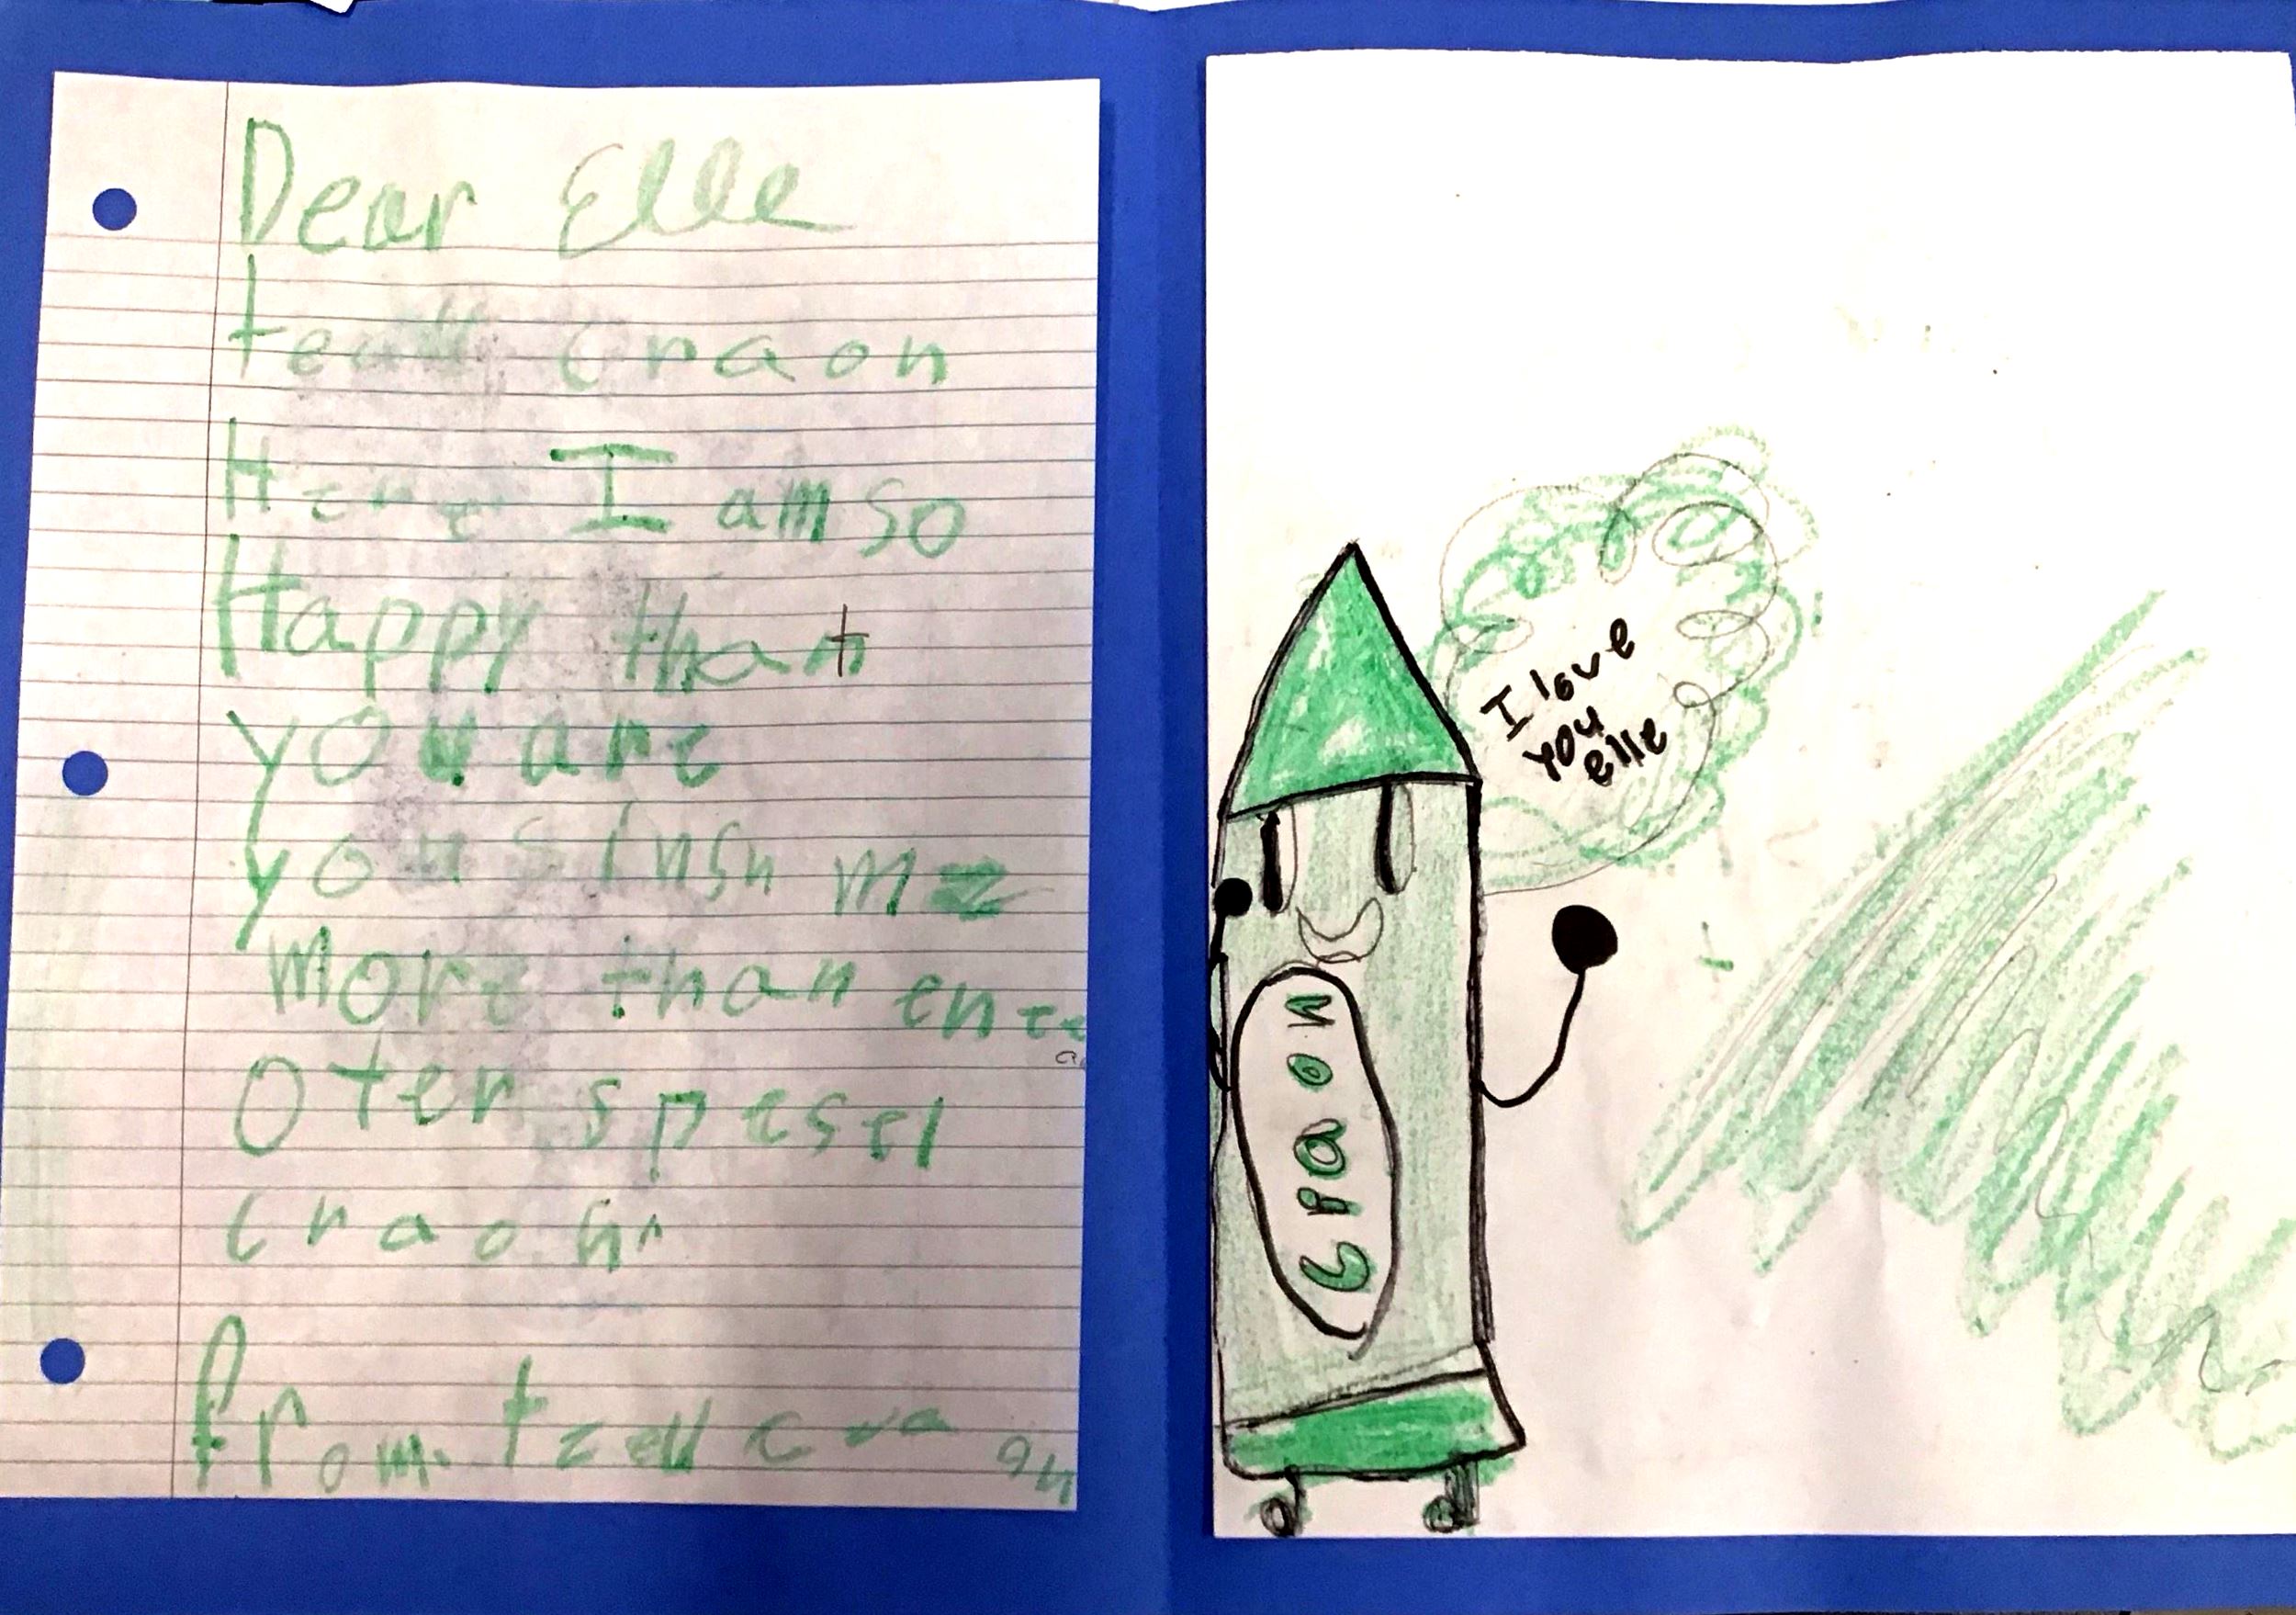 Dear Elle
teall Craon
Here I am so
Happy that
you are
you sinsn me
more than ene
Oter spesel
craon
From teall craon
I love
you
elle
Craon